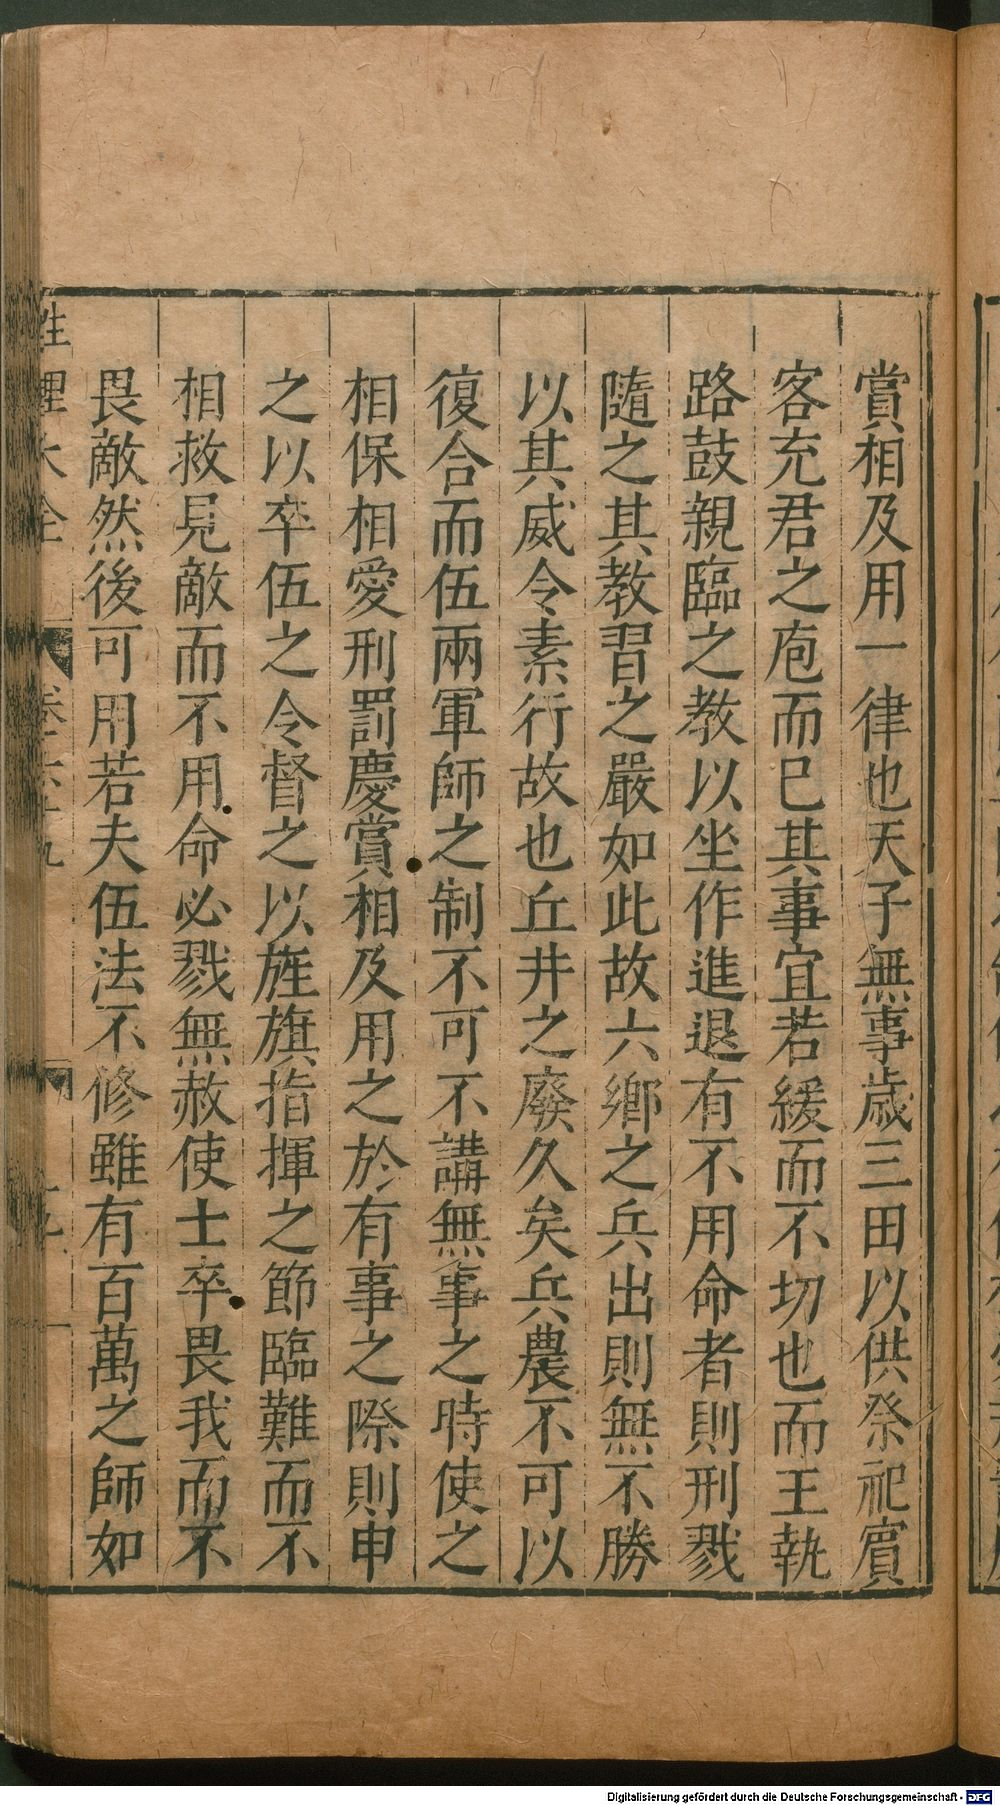 賞相及用一律也天子無事歲三田以供祭祀賓
客充君之庖而已其事宜若緩而不切也而王執
路鼓親臨之教以坐作進退有不用命者則刑戮
隨之其教習之嚴如此故六鄉之兵出則無不勝
以其威令素行故也丘井之廢久矣兵農不可以
復合而伍兩軍師之制不可不講無事之時使之
相保相愛刑罰慶賞相及用之於有事之際則申
之以卒伍之令督之以旌旗指揮之節臨難而不
相救見敵而不用命必戮無赦使士卒畏我而不
畏敵然後可用若夫伍法不修雖有百萬之師如
性理大全
卷六十九
Digitalisierung gefördert durch die Deutsche Forschungsgemeinschaft - DFG